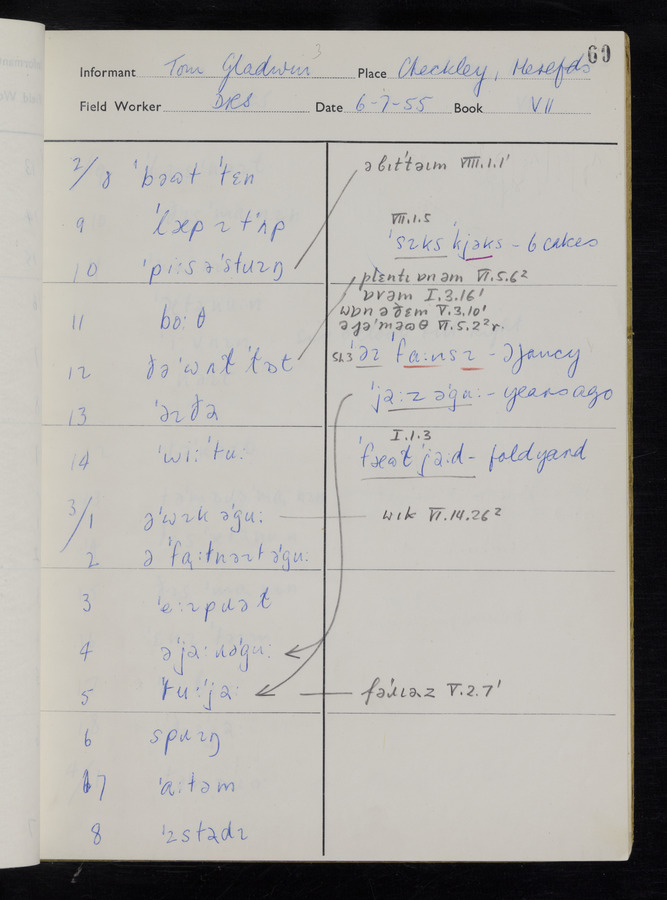 60
Informant Tom Gladwin 3 Place Checkley, Herefds
Field Worker DRS Date 6-7-55 Book VII
2/8 ˈbəɷt ˈtɛn
9 ˈlæp ɪ tˈʌp
10 ˈpiːs ə ˈstɪɪŋ
11 boːθ
12 ðəˈwʌt ˈtɒt
13 ˈəɪðə
14 ˈwiːˈtuː
3/1 əˈwɪk əˈguː
2 ə ˈfɑːtnəɪt əˈguː
3 ˈeːɪpɪɪət
4 əˈjəːɪəˈguː
5 ˈtuːˈjəː
6 spɪɪŋ
7 ˈaːtəm
8 ˈɪstədɪ
ə bɪtˈtəɪm VIII.1.1'
VII.1.5
ˈsɪks ˈkjəks - 6 cakes
plɛntɪ ɒn əm VI.5.6²
ɒvəm I.3.16'
wɒn ə ðɛm V.3.10'
ə jəˈməɷθ VI.5.2²r.
Sh3 ˈəɪ ˈfaːnsɪ - I fancy
ˈjəːz əˈguː - years ago
I.1.3
ˈfæɷt ˈjəːd - foldyard
wɪk VI.14.26²
fəˈɹɪəz V.2.7'